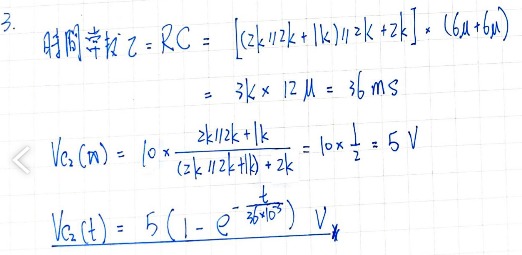 3.
時間常校 τ = RC = [(2k//2k + 1k)//2k + 2k] × (6μ+6μ)
= 3k × 12μ = 36 ms
Vc₂(∞) = 10 × \frac{2k//2k + 1k}{(2k//2k+1k) + 2k} = 10 × \frac{1}{2} = 5 V
Vc₂(t) = 5 (1 - e^{-\frac{t}{36×10^{-3}}}) V